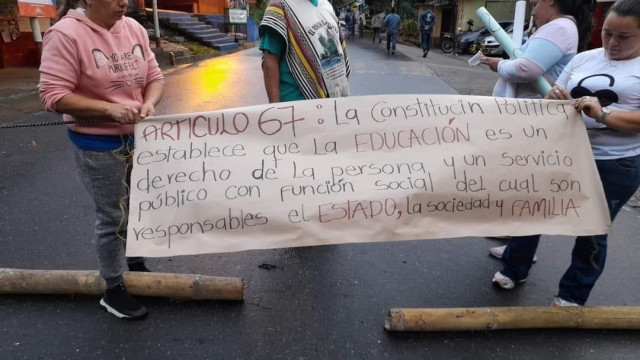 ARTICULO 67: La Constitución Política
establece que LA EDUCACIÓN es un
derecho de la persona y un servicio
público con función social del cual son
responsables el ESTADO, la sociedad y FAMILIA